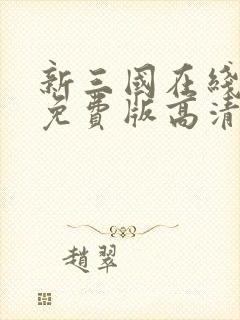 新三國在綫
免費版高清
趙翠